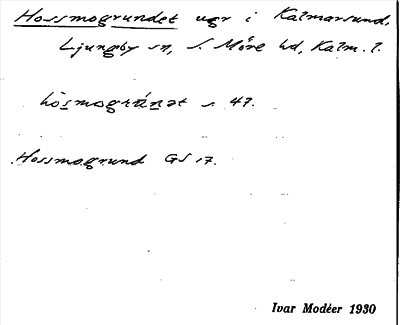 Hossmogrundet ugr i Kalmarsund,
Ljungby sn, S. Möre hd, Kalm. l.
hòsmogrúnət s. 47.
Hossmogrund GS 17.
Ivar Modéer 1930